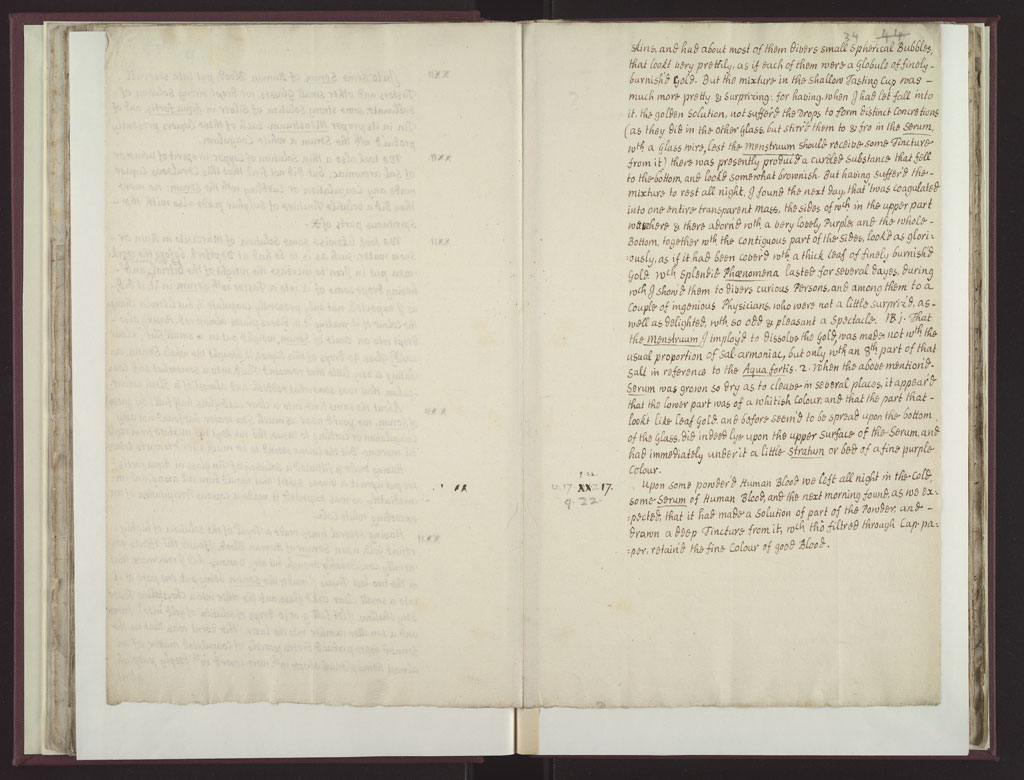 34 44
skins, and had about most of them divers small Spherical Bubbles,
that lookt very prettily, as if each of them were a Globule of finely-
burnish'd Gold. But the mixture in the shallow Tasting Cup was -
much more pretty & Surprizing: for having, when I had let fall into
it, the golden Solution, not suffer'd the Drops to form distinct Concretions
(as they did in the other Glass, but stirr'd them to & fro in the Serum,
wth a Glass wire, lest the Menstruum should receive some Tincture
from it) there was presently produc'd a curdled Substance that fell
to the bottom, and look'd somewhat brownish. But having suffer'd the-
mixture to rest all night, I found the next day, that 'twas coagulated
into one entire transparent Mass, the sides of wch in the upper part
were here & there adorn'd with a very lovely Purple; and the whole-
Bottom, together wth the contiguous part of the Sides, look'd as glori:
:ously, as if it had been cover'd wth a thick leaf of finely burnish'd
Gold. wch Splendid Phænomena lasted for several dayes, during
wch I show'd them to divers curious Persons, and among them to a
Couple of ingenious Physicians, who were not a little surpriz'd, as-
well as delighted, wth so odd & pleasant a Spectacle. NB 1. That
the Menstruum I imploy'd to dissolve the Gold, was made not wth the
usual proportion of Sal-armoniac, but only wth an 8th part of that
Salt in reference to the Aqua fortis. 2. When the above mention'd-
Serum was grown so dry as to cleave in several places, it appear'd
that the lower part was of a whitish Colour, and that the part that-
lookt like leaf Gold, and before seem'd to be spread upon the bottom
of the Glass, did indeed lye upon the upper surface of the Serum, and
had immediately under it a little Stratum or bed of a fine purple
Colour.
XX 17.
22
Upon some powder'd Human Blood we left all night in the Cold,
some Serum of Human Blood, and the next morning found, as we ex:
:pected, that it had made a Solution of part of the Powder, and -
drawn a deep Tincture from it, wch tho' filtred through Cap-pa:
:per, retain'd the fine Colour of good Blood.